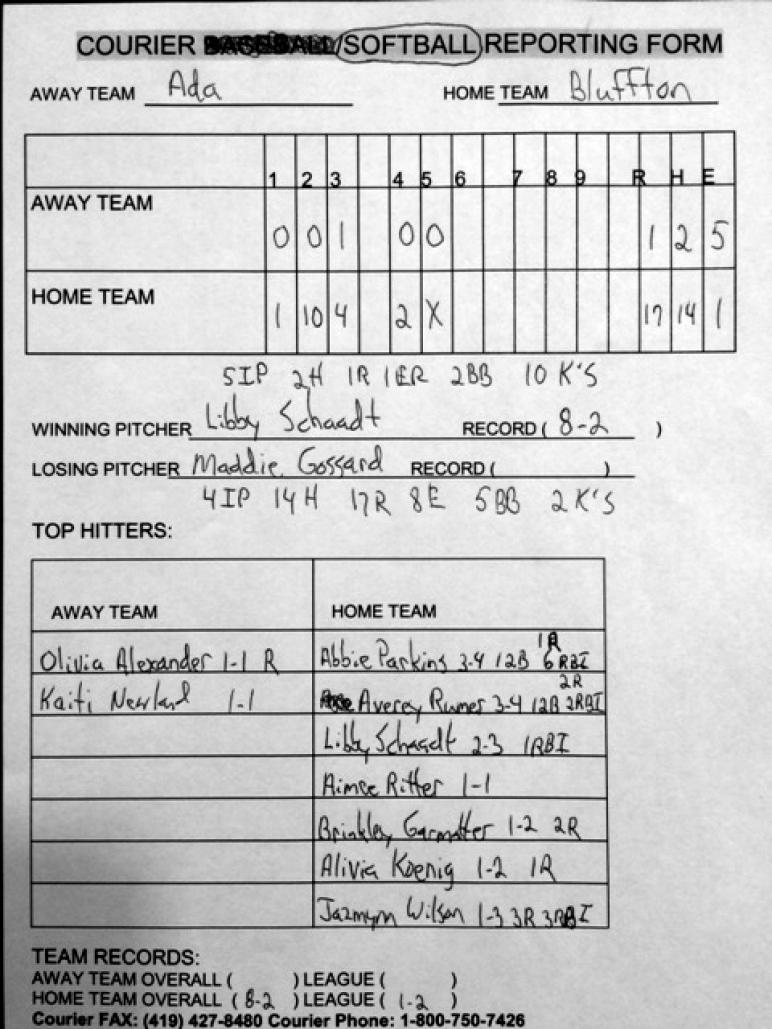 COURIER BASEBALL/SOFTBALL REPORTING FORM
AWAY TEAM Ada HOME TEAM Bluffton
1 2 3 4 5 6 7 8 9 R H E
AWAY TEAM
0 0 1 0 0 1 2 5
HOME TEAM
1 10 4 2 X 17 14 1
5IP 2H 1R 1ER 2BB 10 K'S
WINNING PITCHER Libby Schaadt RECORD ( 8-2 )
LOSING PITCHER Maddie Gossard RECORD ( )
4IP 14H 17R 8E 5BB 2K'S
TOP HITTERS:
AWAY TEAM HOME TEAM
Olivia Alexander 1-1 R Abbie Parkins 3-4 12B 1R 6RBI
Kaiti Newland 1-1 Averey Rumer 3-4 12B 2R 2RBI
Libby Schaadt 2-3 1RBI
Aimee Ritter 1-1
Brinkley Garmatter 1-2 2R
Alivia Koenig 1-2 1R
Jazmyn Wilson 1-3 3R 3RBI
TEAM RECORDS:
AWAY TEAM OVERALL ( ) LEAGUE ( )
HOME TEAM OVERALL ( 8-2 ) LEAGUE ( 1-2 )
Courier FAX: (419) 427-8480 Courier Phone: 1-800-750-7426